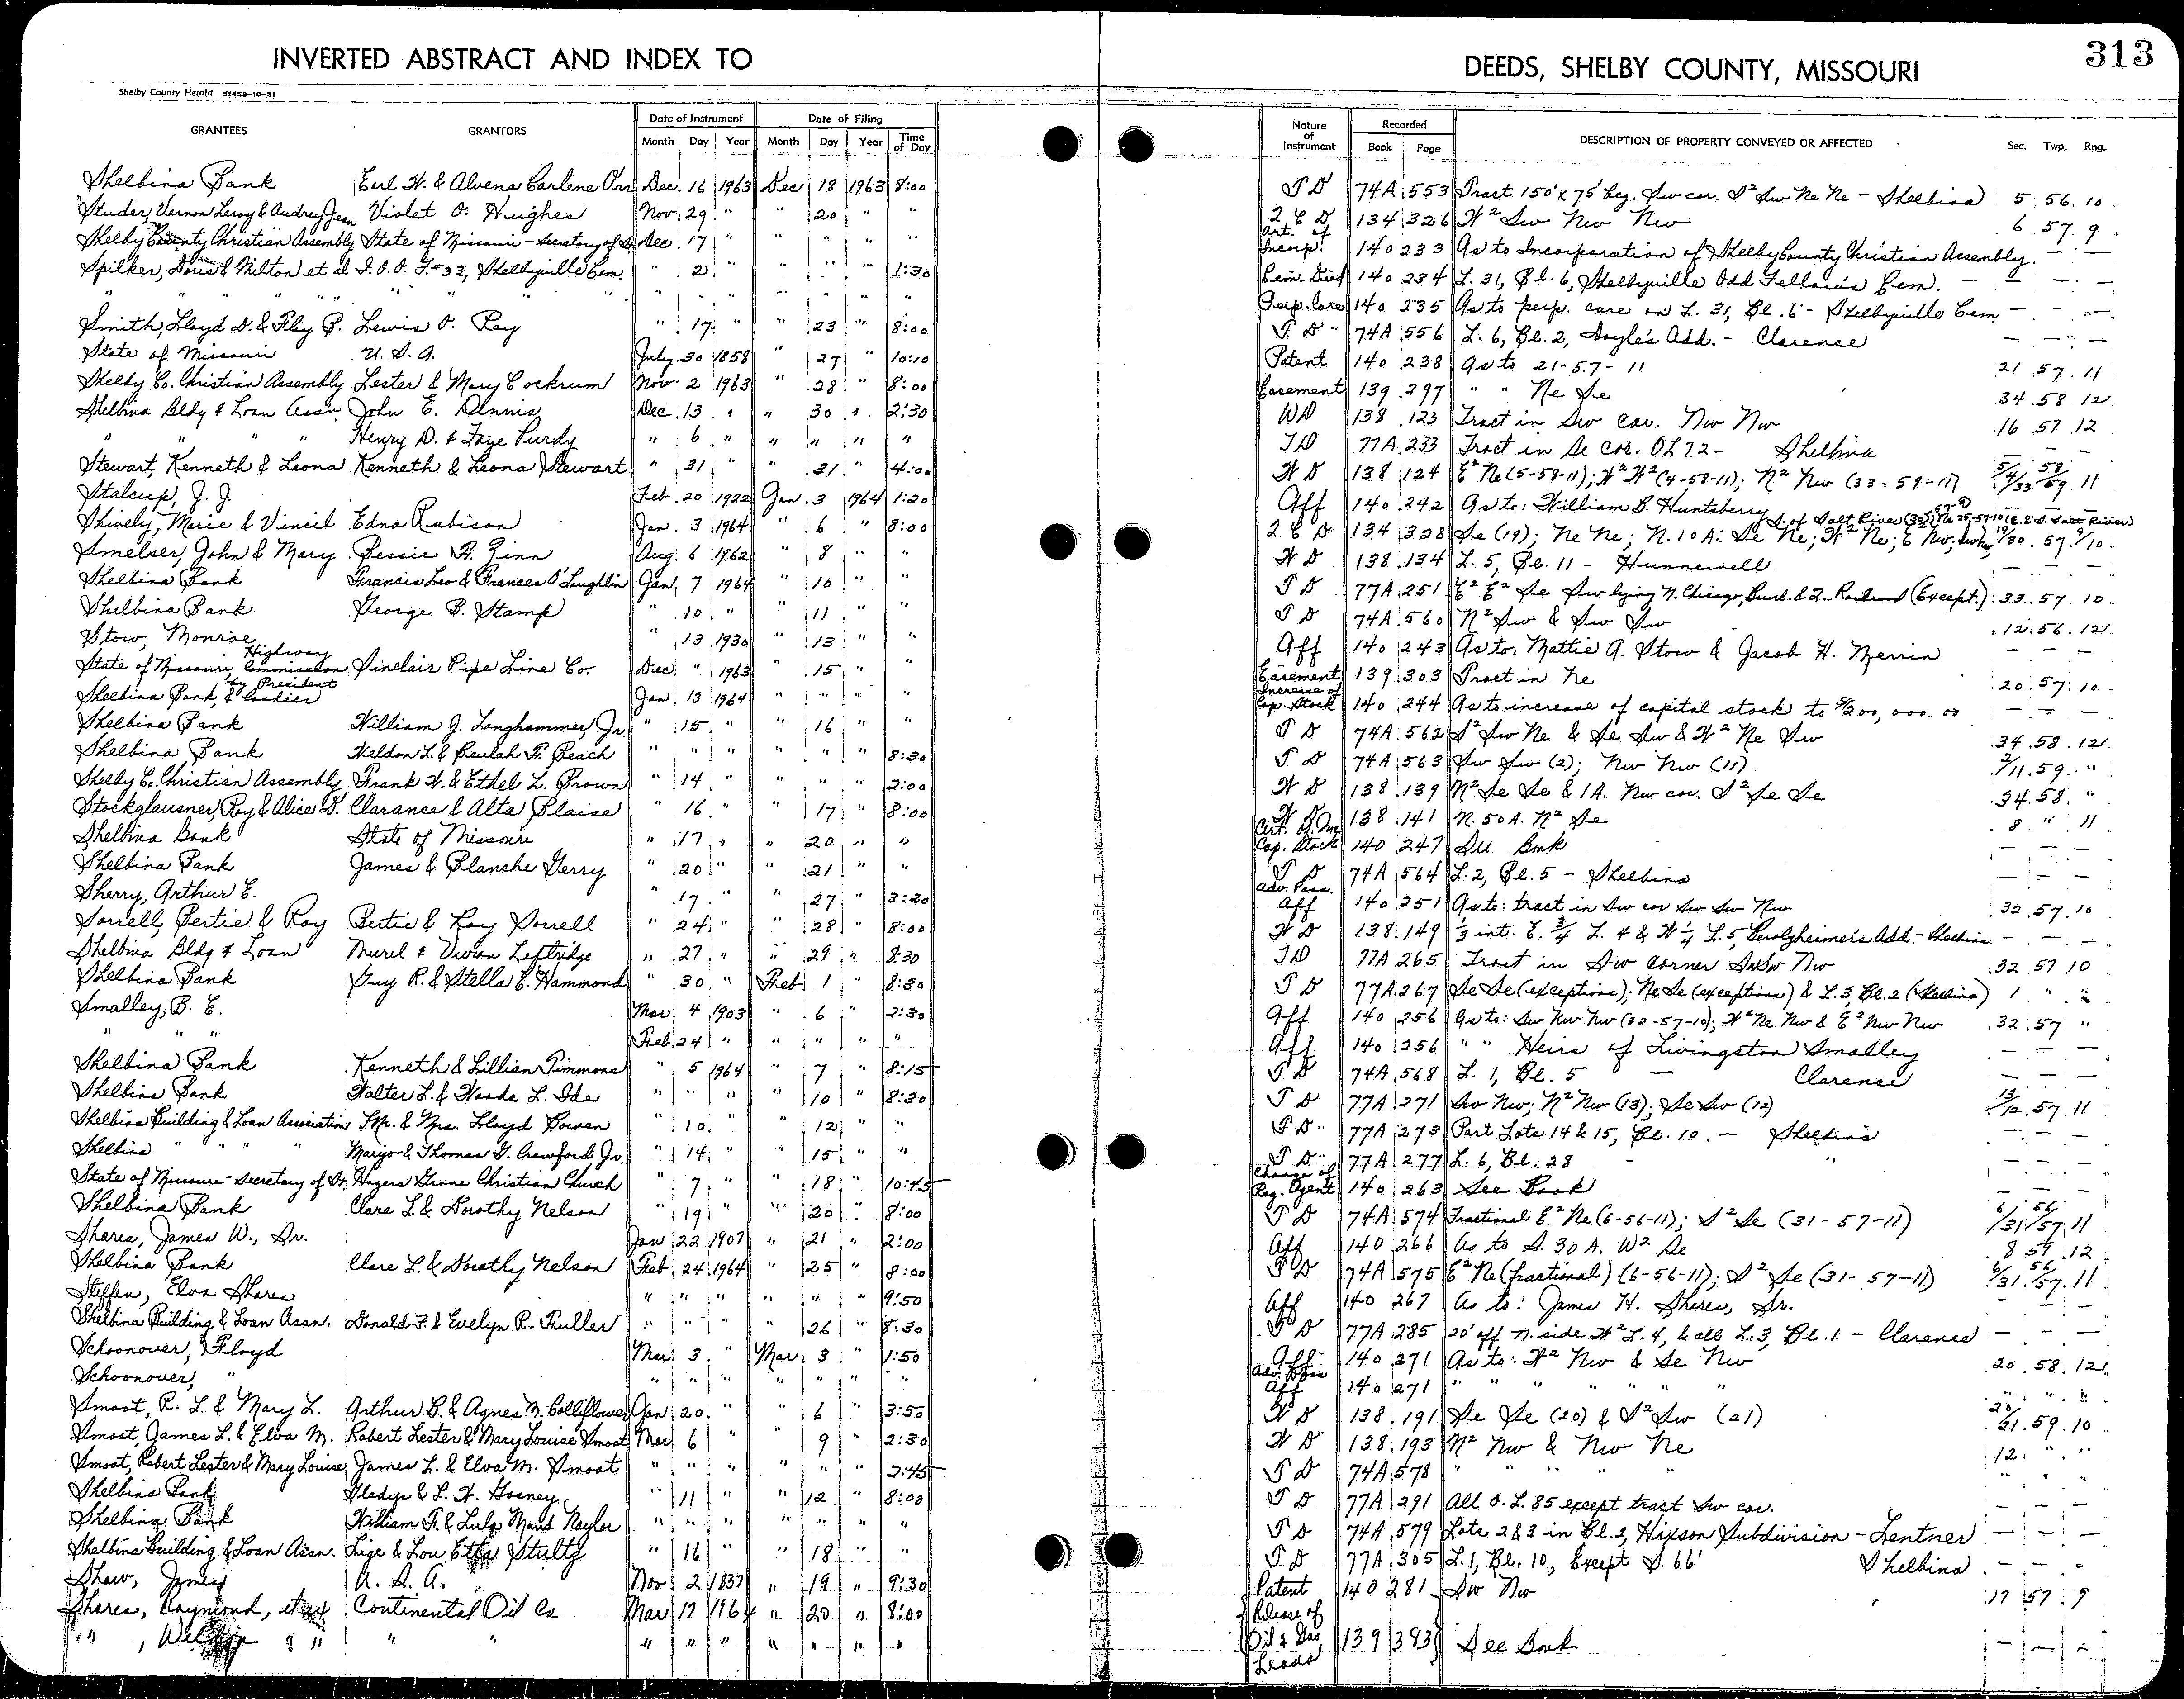 INVERTED ABSTRACT AND INDEX TO DEEDS, SHELBY COUNTY, MISSOURI 313
Shelby County Herald 51458-10-51
GRANTEES GRANTORS Date of Instrument Month Day Year Date of Filing Month Day Year Time of Day Nature of Instrument Recorded Book Page DESCRIPTION OF PROPERTY CONVEYED OR AFFECTED Sec. Twp. Rng.
Shelbina Bank Earl W. & Alvena Carlene Orr Dec. 16 1963 Dec 18 1963 8:00 T D 74A 553 Tract 150' x 75' beg. Sw cor. S² Sw Ne Ne - Shelbina 5 56 10
Studer, Vernon Leroy & Audrey Jean Violet O. Hughes Nov 29 " " 20 " " Q C D 134 326 W² Sw Nw Nw 6 57 9
Shelby County Christian Assembly State of Missouri - Secretary of St. Dec. 17 " " " " " Art. of Incorp. 140 233 As to Incorporation of Shelby County Christian Assembly. - - -
Spilker, Doris & Milton et al I.O.O.F. #33, Shelbyville Cem. " 2 " " " " 1:30 Cem. Deed 140 234 L. 31, Bl. 6, Shelbyville Odd Fellow's Cem. - - -
" " " " " " " " " " " " " " " Perp. Care 140 235 As to perp. care on L. 31, Bl. 6 - Shelbyville Cem - - -
Smith, Lloyd D. & Floy P. Lewis O. Ray " 17 " " 23 " 8:00 T D 74A 556 L. 6, Bl. 2, Doyle's Add. - Clarence - - -
State of Missouri U. S. A. July 30 1858 " 27 " 10:10 Patent 140 238 As to 21-57-11 21 57 11
Shelby Co. Christian Assembly Lester & Mary Cockrum Nov. 2 1963 " 28 " 8:00 Easement 139 297 " " Ne Se 34 58 12
Shelbina Bldg & Loan Assn John E. Dennis Dec. 13 " " 30 " 2:30 WD 138 123 Tract in Sw cor. Nw Nw 16 57 12
" " " " Henry D. & Faye Purdy " 6 " " " " " TD 77A 233 Tract in Se cor. OL 72 - Shelbina - - -
Stewart, Kenneth & Leona Kenneth & Leona Stewart " 31 " " 31 " 4:00 W D 138 124 E² Ne (5-58-11); W² W² (4-58-11); N² Nw (33-59-11) 5/4/33 58/59 11
Stalcup, J. J. Feb. 20 1922 Jan. 3 1964 1:20 Aff 140 242 As to: William B. Huntsberry - - -
Shively, Marie & Vincil Edna Rubison Jan. 3 1964 " 6 " 8:00 Q C D 134 328 Se (19); Ne Ne; N. 10 A. Se Ne; W² Ne; E Nw; 19/30 57 9/10
Smelser, John & Mary Bessie F. Zinn Aug 6 1962 " 8 " " W D 138 134 L. 5, Bl. 11 - Hunnewell - - -
Shelbina Bank Francis Leo & Frances O'Laughlin Jan. 7 1964 " 10 " " T D 77A 251 E² E² Se Sw lying N. Chicago, Burl. & Q. Railroad (Except.) 33 57 10
Shelbina Bank George B. Stamp " 10 " " 11 " " T D 74A 560 N² Sw & Sw Sw 12 56 12
Stow, Monroe " 13 1930 " 13 " " Aff 140 243 As to: Mattie A. Stow & Jacob H. Merrin - - -
State of Missouri, Highway Commission Sinclair Pipe Line Co. Dec. " 1963 " 15 " " Easement 139 303 Tract in Ne 20 57 10
Shelbina Bank, by President & Cashier Jan. 13 1964 " " " " Increase of Cap. Stock 140 244 As to increase of capital stock to $200,000.00 - - -
Shelbina Bank William J. Longhammer, Jr. " 15 " " 16 " " T D 74A 562 S² Sw Ne & Se Sw & W² Ne Sw 34 58 12
Shelbina Bank Weldon L. & Beulah F. Beach " " " " " " 8:30 T D 74A 563 Sw Sw (2); Nw Nw (11) 2/11 59 "
Shelby Co. Christian Assembly Frank W. & Ethel L. Brown " 14 " " " " 2:00 W D 138 139 N² Se Se & 1A. Nw cor. S² Se Se 34 58 "
Stockglausner, Roy & Alice D. Clarance & Alta Blaise " 16 " " 17 " 8:00 W D 138 141 N. 50 A. N² Se 8 " 11
Shelbina Bank State of Missouri " 17 " " 20 " " Cert. of Inc. Cap. Stock 140 247 See Book - - -
Shelbina Bank James & Blanche Gerry " 20 " " 21 " " T D 74A 564 L. 2, Bl. 5 - Shelbina - - -
Sherry, Arthur E. " 17 " " 27 " 3:20 Adv. Poss. Aff 140 251 As to: tract in Sw cor Sw Sw Nw 32 57 10
Sorrell, Bertie & Roy Bertie & Roy Sorrell " 24 " " 28 " 8:00 W D 138 149 ⅓ int. E. ¾ L. 4 & W ¼ L. 5, Gerolzheimer's Add. - Shelbina - - -
Shelbina Bldg & Loan Murel & Vivian Leftridge " 27 " " 29 " 8:30 TD 77A 265 Tract in Sw Corner SwSw Nw 32 57 10
Shelbina Bank Guy R. & Stella E. Hammond " 30 " Feb 1 " 8:30 T D 77A 267 Se Se (exceptions); Ne Se (exceptions) & L. 3, Bl. 2 (Shelbina) 1 " "
Smalley, B. E. Mar 4 1903 " 6 " 2:30 Aff 140 256 As to: Sw Nw Nw (32-57-10); W² Ne Nw & E² Nw Nw 32 57 "
" " " Feb 24 " " " " " Aff 140 256 " " Heirs of Livingston Smalley - - -
Shelbina Bank Kenneth & Lillian Timmons " 5 1964 " 7 " 8:15 T D 74A 568 L. 1, Bl. 5 - Clarence - - -
Shelbina Bank Walter L. & Wanda L. Ide " " " " 10 " 8:30 T D 77A 271 Sw Nw; N² Nw (13); Se Sw (12) 13/12 57 11
Shelbina Building & Loan Association Mr. & Mrs. Lloyd Bowen " 10 " " 12 " " T D 77A 273 Part Lots 14 & 15, Bl. 10 - Shelbina - - -
Shelbina " " " Marijo & Thomas G. Crawford Jr. " 14 " " 15 " " T D 77A 277 L. 6, Bl. 28 - " - - -
State of Missouri - Secretary of St. Hagers Grove Christian Church " 7 " " 18 " 10:45 Change of Reg. Agent 140 263 See Book - - -
Shelbina Bank Clare L. & Dorothy Nelson " 19 " " 20 " 8:00 T D 74A 574 Fractional E² Ne (6-56-11); S² Se (31-57-11) 6/31 56/57 11
Shares, James W., Sr. Jan 22 1907 " 21 " 2:00 Aff 140 266 As to S. 30 A. W² Se 8 59 12
Shelbina Bank Clare L. & Dorothy Nelson Feb. 24 1964 " 25 " 8:00 T D 74A 575 E² Ne (fractional) (6-56-11); S² Se (31-57-11) 6/31 56/57 11
Steffen, Elva Shares " " " " " " 9:50 Aff 140 267 As to: James W. Shares, Sr. - - -
Shelbina Building & Loan Assn. Donald F. & Evelyn R. Fuller " " " " 26 " 8:30 T D 77A 285 20' off N. side W² L. 4, & all L. 3, Bl. 1 - Clarence - - -
Schoonover, Floyd Mar 3 " Mar 3 " 1:50 Aff 140 271 As to: W² Nw & Se Nw 20 58 12
Schoonover, " " " " " " " " Adv. Poss Aff 140 271 " " " " " " " " "
Smoot, R. L. & Mary L. Arthur B. & Agnes M. Colliflower Jan 20 " " 6 " 3:50 W D 138 191 Se Se (20) & S² Sw (21) 20/21 59 10
Smoot, James L. & Elva M. Robert Lester & Mary Louise Smoot Mar 6 " " 9 " 2:30 W D 138 193 N² Nw & Nw Ne 12 " "
Smoot, Robert Lester & Mary Louise James L. & Elva M. Smoot " " " " " " 2:45 T D 74A 578 " " " " " " " "
Shelbina Bank Gladys & L. W. Gosney " 11 " " 12 " 8:00 T D 77A 291 All O. L. 85 except tract Sw cor. - - -
Shelbina Bank William F. & Lula Maud Naylor " " " " " " " T D 74A 579 Lots 2 & 3 in Bl. 2, Hixson Subdivision - Lentner - - -
Shelbina Building & Loan Assn. Lige & Lou Etta Stultz " 16 " " 18 " " T D 77A 305 L. 1, Bl. 10, Except S. 66' Shelbina - - -
Shaw, James U. S. A. Nov 2 1837 " 19 " 9:30 Patent 140 281 Sw Nw 17 57 9
Shares, Raymond, et ux Continental Oil Co Mar 17 1964 " 20 " 8:00 Release of
" , " " " " " " " " " " " Oil & Gas Lease 139 383 See Book - - -